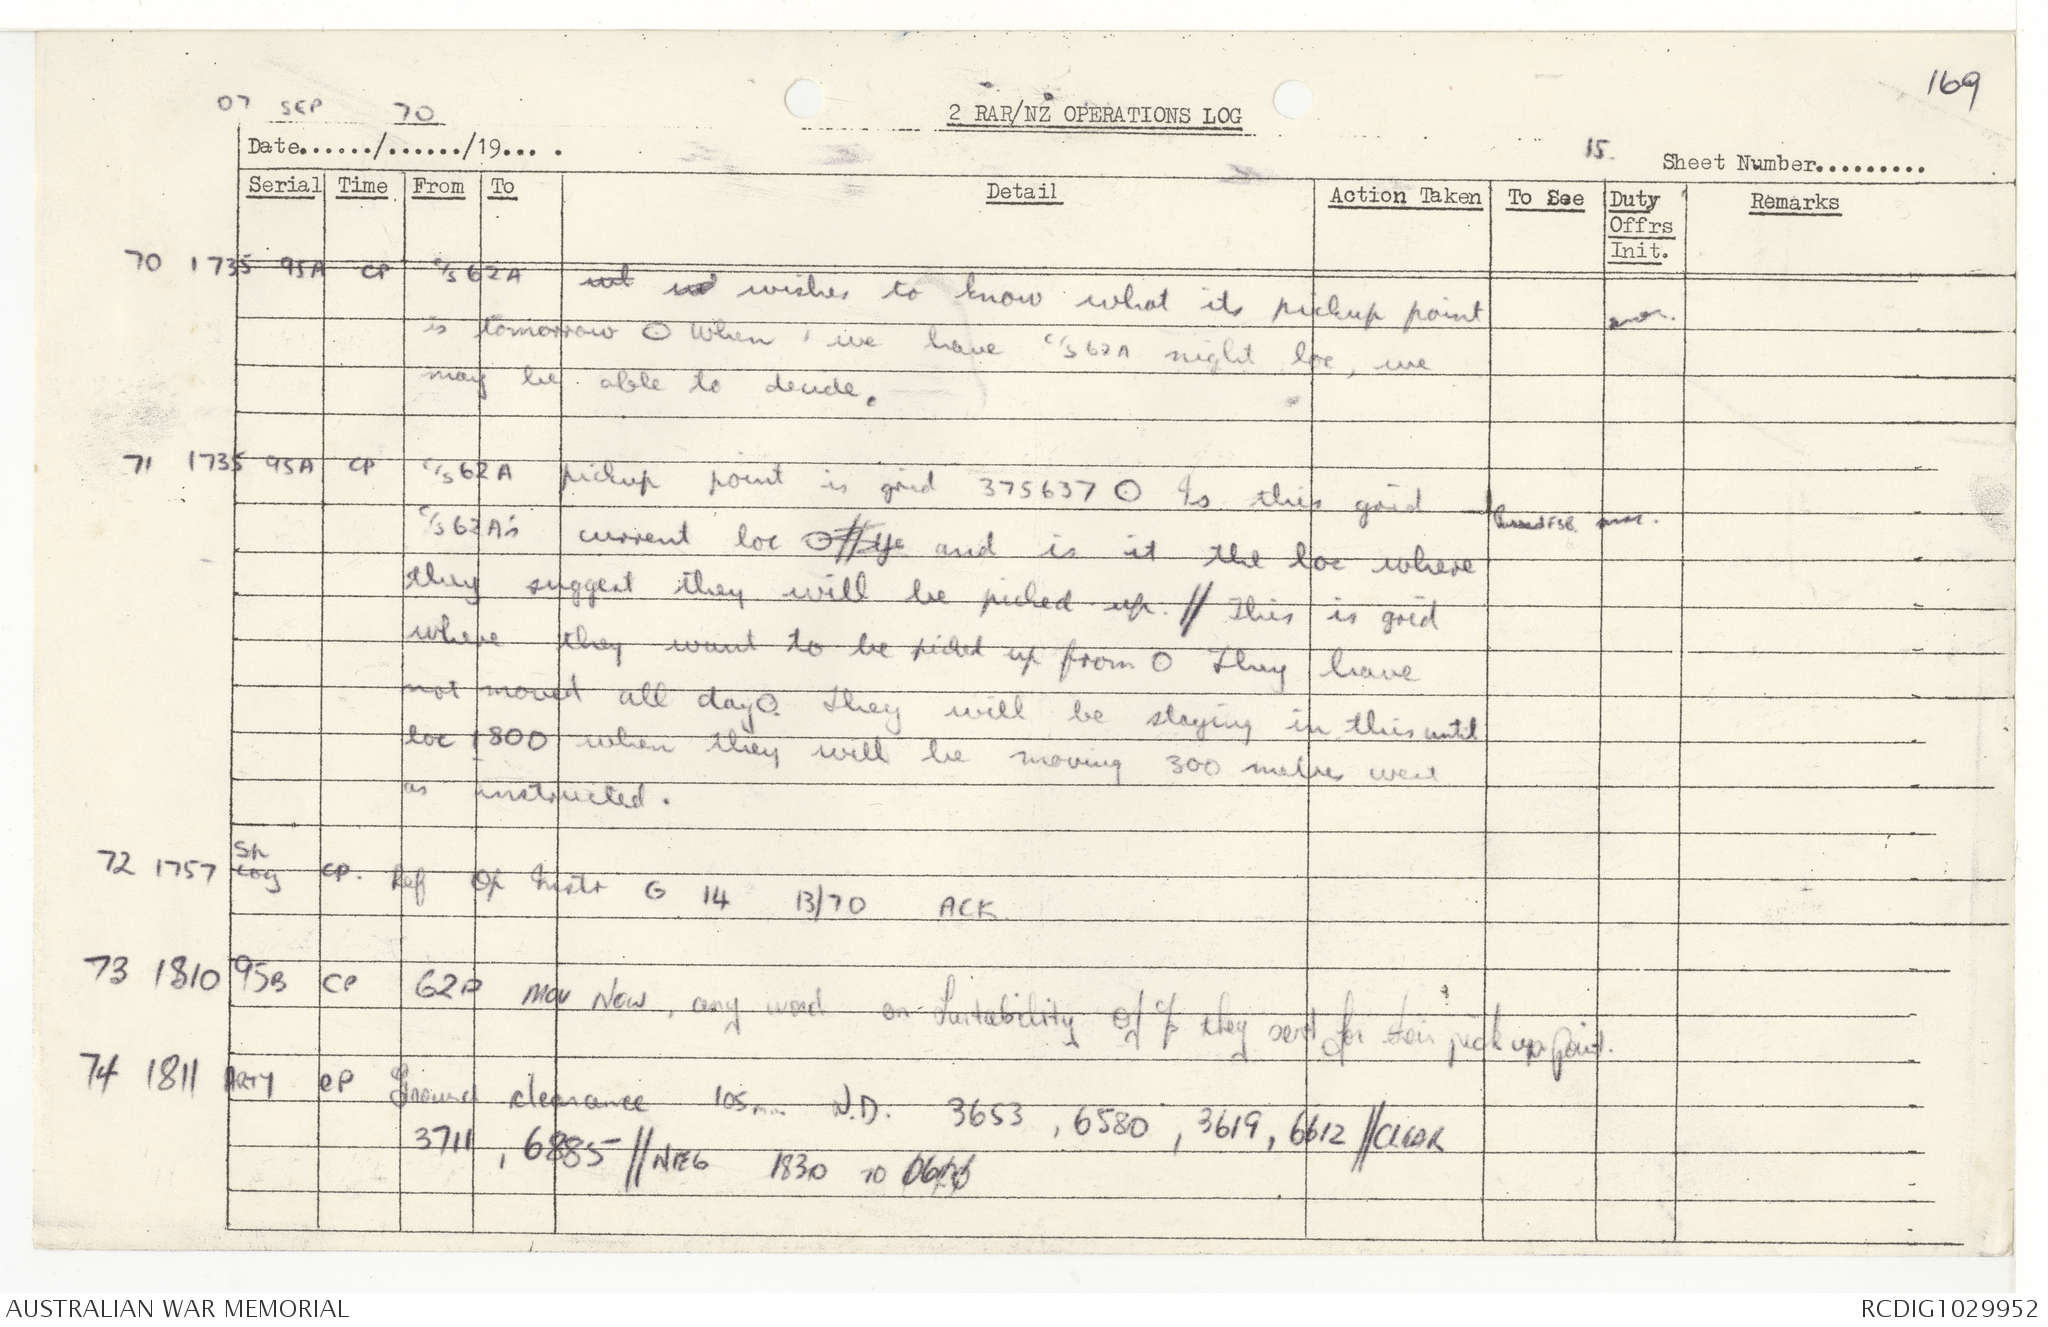 169
07 SEP 70
2 RAR/NZ OPERATIONS LOG
Date....../....../19... .
15. Sheet Number.........
Serial Time From To Detail Action Taken To See Duty Offrs Init. Remarks
70 1735 95A CP C/S 62A wishes to know what its pickup point
is tomorrow O When we have C/S 62A night loc, we
may be able to decide.
71 1735 95A CP C/S 62A pickup point is grid 375637 O Is this grid
C/S 62A's current loc and is it the loc where
they suggest they will be picked up. // This is grid
where they want to be picked up from O They have
not moved all day O. They will be staying in this until
loc 1800 when they will be moving 300 metres west
as instructed.
72 1757 CP. Ref Op Instr G 14 13/70 ACK
73 1810 95B CP 62A mov Now, any word on suitability of they sent for their pick up point.
74 1811 ARTY CP Ground clearance 105mm N.D. 3653, 6580, 3619, 6612 // CLEAR
3711, 6885 // NEG 1830 TO
AUSTRALIAN WAR MEMORIAL
RCDIG1029952